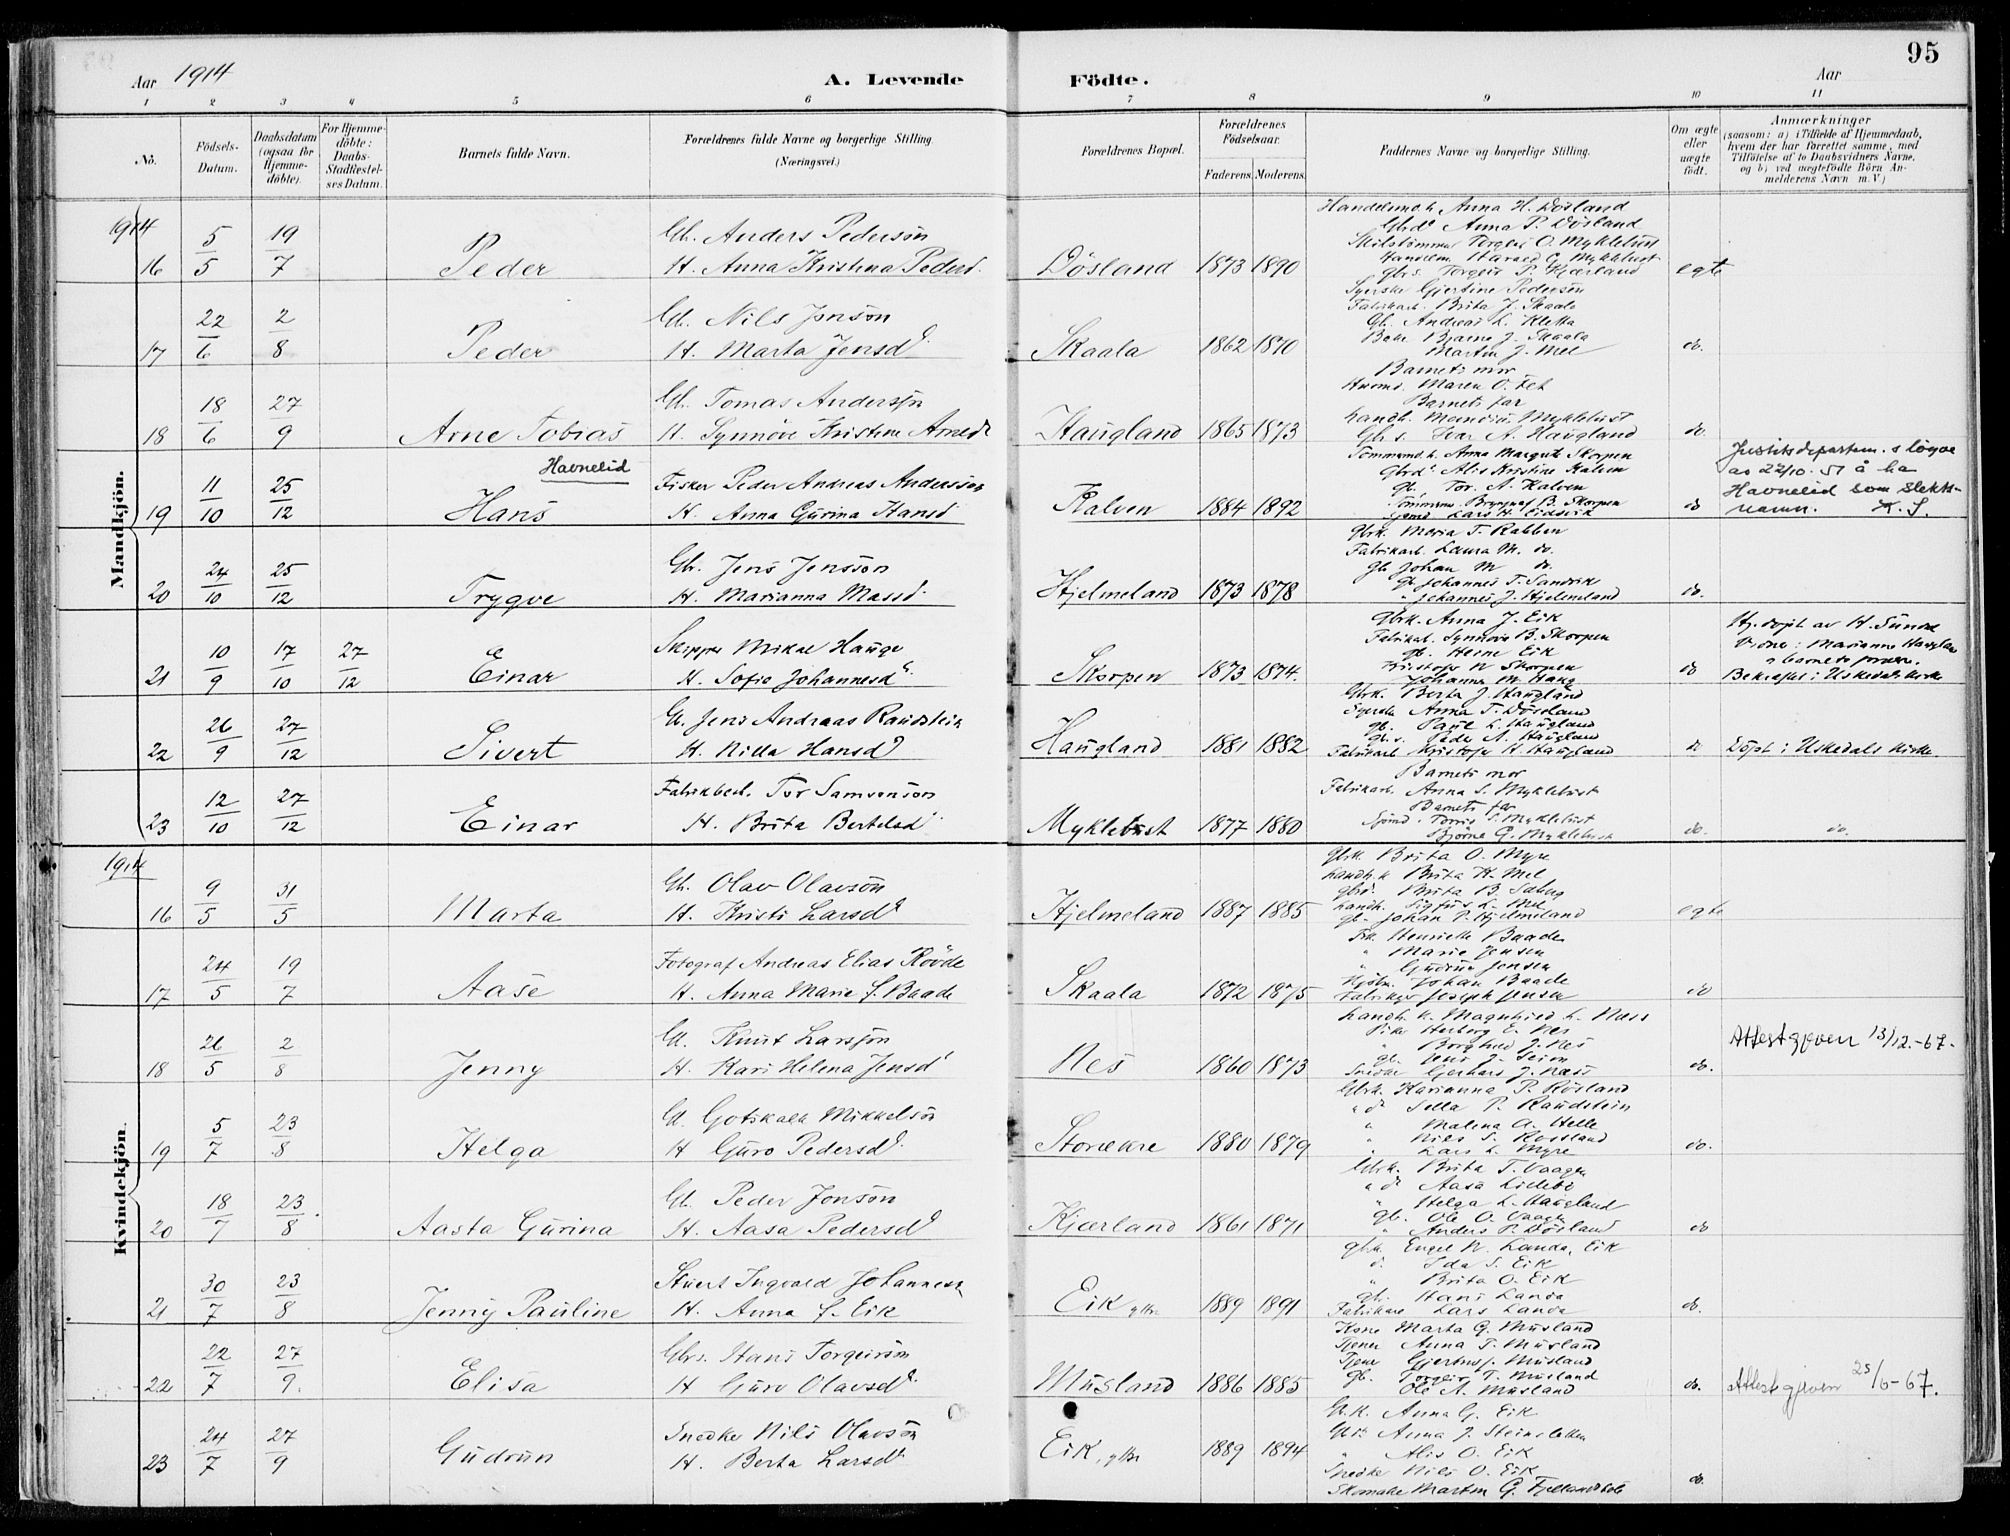 95
Aar 1914
A. Levende Födte.
Aar
1 2 3 4 5 6 7 8 9 10 11
No.
Födsels-Datum.
Daabsdatum (ogsaa for Hjemme-döbte).
For Hjemme-döbte: Daabs-Stadfestel-ses Datum.
Barnets fulde Navn.
Forældrenes fulde Navne og borgerlige Stilling (Næringsvei.)
Forældrenes Bopæl.
Forældrenes Födselsaar.
Faderens. Moderens.
Faddernes Navne og borgerlige Stilling.
Om ægte eller uægte födt.
Anmærkninger
(saasom: a) i Tilfælde af Hjemmedaab, hvem der har forrettet samme, med Tilföielse af to Daabsvidners Navne, og b) ved uægtefödte Börn An-melderens Navn m. V.)
Mandkjön.
1914
16 5/5 19/7 Peder
Gb. Anders Pedersön
H. Anna Kristina Pedersd.
Dösland 1873 1890
Handelsmd. h. Anna H. Dösland
Gbrd. Anna P. Dösland
Torgeir O. Myklebust
Harald O. Myklebust
Gbrs. Torgeir P. Kjærland
egte
17 22/6 2/8 Peder
Gb. Nils Jonson
H. Marta Jensd.
Skaala 1862 1870
Syerske Gjertine Pedersen
Fabrikarb. Brita J. Skaala
Gb. Andreas L. Kletta
Bjarne J. Skaala
Martin J. Mel
do.
18 18/6 27/9 Arne Tobias
Gb. Tomas Andersson
H. Synnöve Kristine Arnedr
Haugland 1865 1873
Barnets mor
Husmd. Maren O. Fet
Barnets far
Landh. Myklebust
Gbr s. Ivar A. Haugland
do.
19 11/10 25/12 Hans Havnelid
Fisker Peder Andreas Anderssön
H. Anna Gurina Hansd
Kalven 1884 1892
Tömmermd. h. Anna Margrete Skorpen
Gbrd. Alis Kristine Kalven
gb. Tor. A. Kalven
B. Skorpen
Lars H. Eidsvik
do
Justisdepartem. s löyve
av 22/10. 51 å ha
Havnelid som slekts-
navn. K. S.
20 24/10 25/12 Trygve
Gb. Jens Jensson
H. Marianna Massd.
Hjelmeland 1873 1878
Gbrk. Maria T. Rabben
Fabrikarb. Laura M. do.
Gb Johan M do.
Gb Johannes T. Sandvik
" Johannes J. Hjelmeland
do.
21 10/9 17/10 27/12 Einar
Skipper Mikal Hauge
H. Sofie Johannesd.
Skorpen 1873 1874.
Gbrk. Anna J. Eik
Fabrikarb. Synnöve B. Skorpen
gb. Heine Eik
Kristofer N Skorpen
Johannes M. Haug
do
Hj. döpt av H. Sunde
Vidner: Marianne Haugland
o barnets
Bekræftet i Uskedals kirke
22 26/9 27/12 Sivert
Gb. Jens Andreas Raudstein
H. Nilla Hansd.
Haugland 1881 1882
Gbrk. Berta J. Haugland
Syerske Anna T. Dösland
gb. Paul L. Haugland
gb. s. Peder A. Haugland
Fabrikarb. Kristofer H. Haugland
do
Döpt i Uskedals kirke
23 12/10 27/12 Einar
Fabrikbest. Tor Samsonson
H. Brita Bertelsd
Myklebust 1877 1880
Barnets mor
Fabrikarb. Anna S. Myklebust
Barnets far
Törris S. Myklebust
Björne G. Myklebust
do.
do.
Kvindekjön.
1914
16 9/5 31/5 Marta
Gb. Olav Olavsön
H. Kristi Larsd.
Hjelmeland 1887 1885
Gbrk. Brita O. Myre
Landh. k Brita K. Mel
Gbrd. Brita B.
Landh. Sigfus L. Mel
gb. Johan P. Hjelmeland
egte
17 24/5 19/7 Aase
Fotograf Andreas Elias Rövde
H. Anna Marie f. Baade
Skaala 1872 1875
Frk. Henrielle Baade
" Marie Jensen
" Gudrun Jensen
Johan Baade
Fabrikeier Joseph Jensen
do
18 26/5 2/8 Jenny
Gb. Knut Larsson
H. Kari Helena Jensd
Nes 1860 1873
Landh. k. Magnhild L. Næss
Pike Herborg E. Nes
Borghild J. Nes
gb. Jens J. Seim
Snedker Gerhard J. Næss
do.
Attest given 13/12.-67.
19 5/7 23/8 Helga
Gb. Gotskalk Mikkelsön
H Guro Pedersd.
Storækre 1880 1879
Gbrk. Marianna P. Rösland
Sella P. Raudstein
" Malena A. Helle
" Nils S. Rossland
" Lars L. Myre
do.
20 18/7 23/8. Aasta Gurina
Gb. Peder Jonson
H. Aasa Pedersd.
Kjærland 1861 1871
Gbrk. Brita T. Vaagen
Aasa Lidebö
" Helga L. Haugland
gb. Ole O. Vaage
" Anders P. Dösland
do
21 30/7 23/8 Jenny Pauline
Stuert Ingvald Johannessn
H. Anna f. Eik
Eik ytre 1889 1891
gbrk. Engel N. Landa, Eik
Ida S. Eik
" Brita O. Eik
gb. Hans Landa
Lars Landa
do.
22 22/7 27/9. Elisa
Gbrs. Hans Torgeirson
H Guro Olavsd.
Musland 1886 1885
Kone Marta G. Musland
Tjener Anna T. Musland
Tjener Musland
gb. Torgeir T. Musland
Ole A. Musland
do.
Attest given 25/6-67.
23 24/7 27/9 Gudrun
Snedker Nils Olavsön
H. Berta Larsd.
Eik, ytre 1889 1894
Gb. K. Anna G. Eik
Anna J. Steinsletten
" Alis O. Eik
Snedker Nils O. Eik
Skomaker Martin G. Fjellandsbö
do.